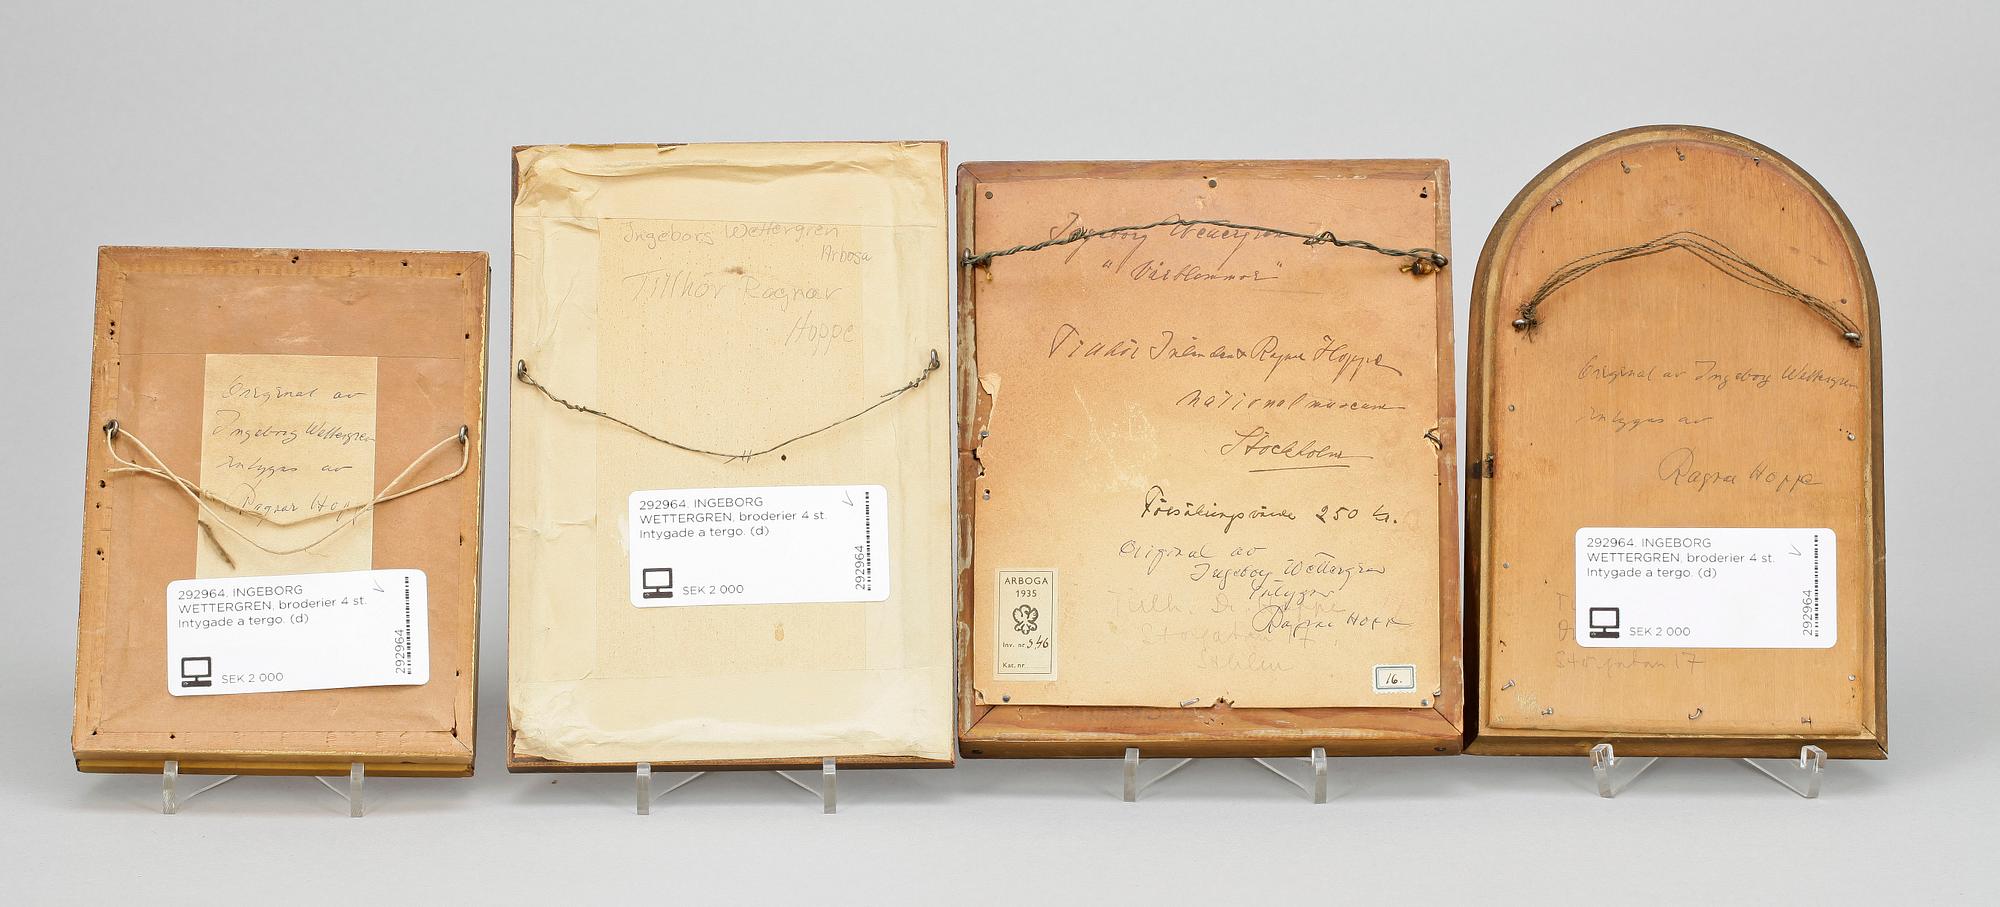 Original av
Ingeborg Wettergren
intygas av
Ragnar Hoppe
292964. INGEBORG
WETTERGREN, broderier 4 st.
Intygade a tergo. (d)
292964
SEK 2 000
Ingeborg Wettergren
Arboga
Tillhör Ragnar
Hoppe
292964. INGEBORG
WETTERGREN, broderier 4 st.
Intygade a tergo. (d)
292964
SEK 2 000
Ingeborg Wettergren
"Vårblommor"
Tillhör Intendent Ragnar Hoppe
Nationalmuseum
Stockholm
Försäkringsvärde 250 kr.
Original av
Ingeborg Wettergren
intygas
Ragnar Hoppe
Dr. Hoppe
Storgatan 17
Sthlm
ARBOGA
1935
Inv. nr 546
Kat. nr
16.
Original av Ingeborg Wettergren
intygas av
Ragnar Hoppe
292964. INGEBORG
WETTERGREN, broderier 4 st.
Intygade a tergo. (d)
292964
SEK 2 000
Storgatan 17